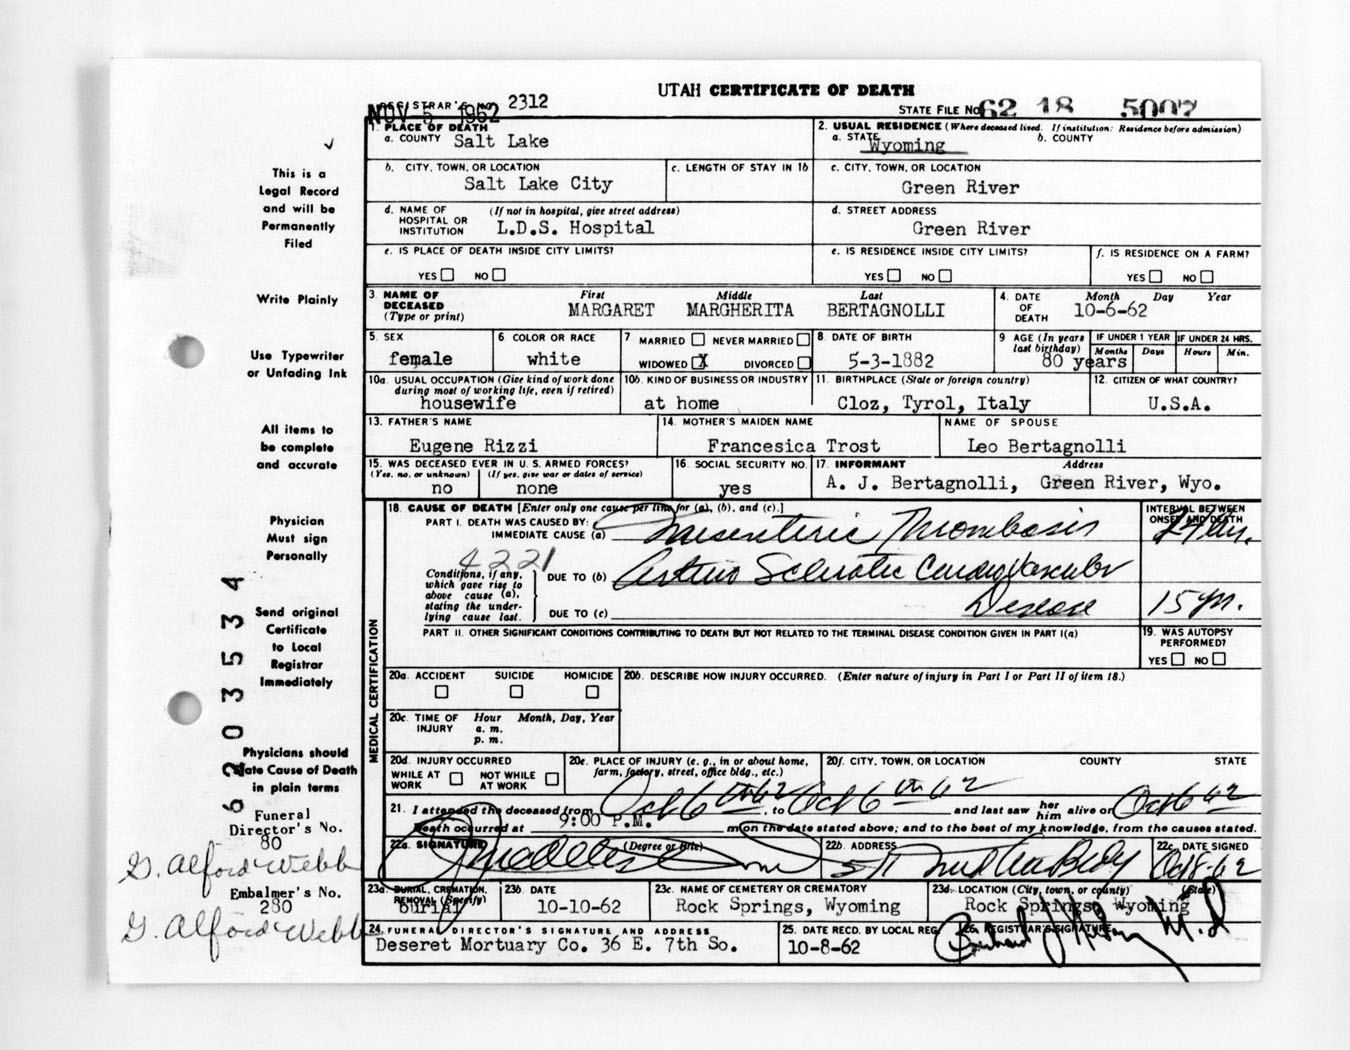 UTAH CERTIFICATE OF DEATH
REGISTRAR'S NO. 2312
NOV 5 1962
STATE FILE NO. 62 18 5007
1. PLACE OF DEATH
a. COUNTY Salt Lake
2. USUAL RESIDENCE (Where deceased lived. If institution: Residence before admission)
a. STATE Wyoming b. COUNTY
b. CITY, TOWN, OR LOCATION Salt Lake City
c. LENGTH OF STAY IN 1b
c. CITY, TOWN, OR LOCATION Green River
d. NAME OF HOSPITAL OR INSTITUTION (If not in hospital, give street address) L.D.S. Hospital
d. STREET ADDRESS Green River
e. IS PLACE OF DEATH INSIDE CITY LIMITS?
YES NO
e. IS RESIDENCE INSIDE CITY LIMITS?
YES NO
f. IS RESIDENCE ON A FARM?
YES NO
3. NAME OF DECEASED (Type or print)
First Middle Last
MARGARET MARGHERITA BERTAGNOLLI
4. DATE OF DEATH
Month Day Year
10-6-62
5. SEX female
6. COLOR OR RACE white
7 MARRIED NEVER MARRIED
WIDOWED X DIVORCED
8. DATE OF BIRTH 5-3-1882
9 AGE (In years last birthday) 80 years
IF UNDER 1 YEAR Months Days
IF UNDER 24 HRS. Hours Min.
10a. USUAL OCCUPATION (Give kind of work done during most of working life, even if retired) housewife
10b. KIND OF BUSINESS OR INDUSTRY at home
11. BIRTHPLACE (State or foreign country) Cloz, Tyrol, Italy
12. CITIZEN OF WHAT COUNTRY? U.S.A.
13. FATHER'S NAME Eugene Rizzi
14. MOTHER'S MAIDEN NAME Francesica Trost
NAME OF SPOUSE Leo Bertagnolli
15. WAS DECEASED EVER IN U. S. ARMED FORCES?
(Yes, no, or unknown) (If yes, give war or dates of service)
no none
16. SOCIAL SECURITY NO. yes
17. INFORMANT Address
A. J. Bertagnolli, Green River, Wyo.
18. CAUSE OF DEATH [Enter only one cause per line for (a), (b), and (c).]
PART I. DEATH WAS CAUSED BY:
IMMEDIATE CAUSE (a) Mesenteric Thrombosis
INTERVAL BETWEEN ONSET AND DEATH
24 hr.
4221
Conditions, if any, which gave rise to above cause (a), stating the underlying cause last.
DUE TO (b) Arterio Sclerotic Cardiovascular
Disease 15 yr.
DUE TO (c)
PART II. OTHER SIGNIFICANT CONDITIONS CONTRIBUTING TO DEATH BUT NOT RELATED TO THE TERMINAL DISEASE CONDITION GIVEN IN PART I(a)
19. WAS AUTOPSY PERFORMED?
YES NO
MEDICAL CERTIFICATION
20a. ACCIDENT SUICIDE HOMICIDE
20b. DESCRIBE HOW INJURY OCCURRED. (Enter nature of injury in Part I or Part II of item 18.)
20c. TIME OF INJURY Hour a. m. p. m. Month, Day, Year
20d. INJURY OCCURRED
WHILE AT WORK NOT WHILE AT WORK
20e. PLACE OF INJURY (e. g., in or about home, farm, factory, street, office bldg., etc.)
20f. CITY, TOWN, OR LOCATION COUNTY STATE
21. I attended the deceased from Oct 6th 62, to Oct 6th 62 and last saw her him alive on Oct 6 62
Death occurred at 9:00 P.M. m on the date stated above; and to the best of my knowledge, from the causes stated.
22a. SIGNATURE (Degree or title)
22b. ADDRESS
22c. DATE SIGNED Oct 8-62
23a. BURIAL, CREMATION, REMOVAL (Specify) burial
23b. DATE 10-10-62
23c. NAME OF CEMETERY OR CREMATORY Rock Springs, Wyoming
23d. LOCATION (City, town, or county) (State) Rock Springs, Wyoming
24. FUNERAL DIRECTOR'S SIGNATURE AND ADDRESS
Deseret Mortuary Co. 36 E. 7th So.
25. DATE RECD. BY LOCAL REG. 10-8-62
26. REGISTRAR'S SIGNATURE
This is a
Legal Record
and will be
Permanently
Filed
Write Plainly
Use Typewriter
or Unfading Ink
All items to
be complete
and accurate
Physician
Must sign
Personally
Send original
Certificate
to Local
Registrar
Immediately
Physicians should
state Cause of Death
in plain terms
Funeral
Director's No.
80
G. Alford Webb
Embalmer's No.
280
G. Alford Webb
62035534